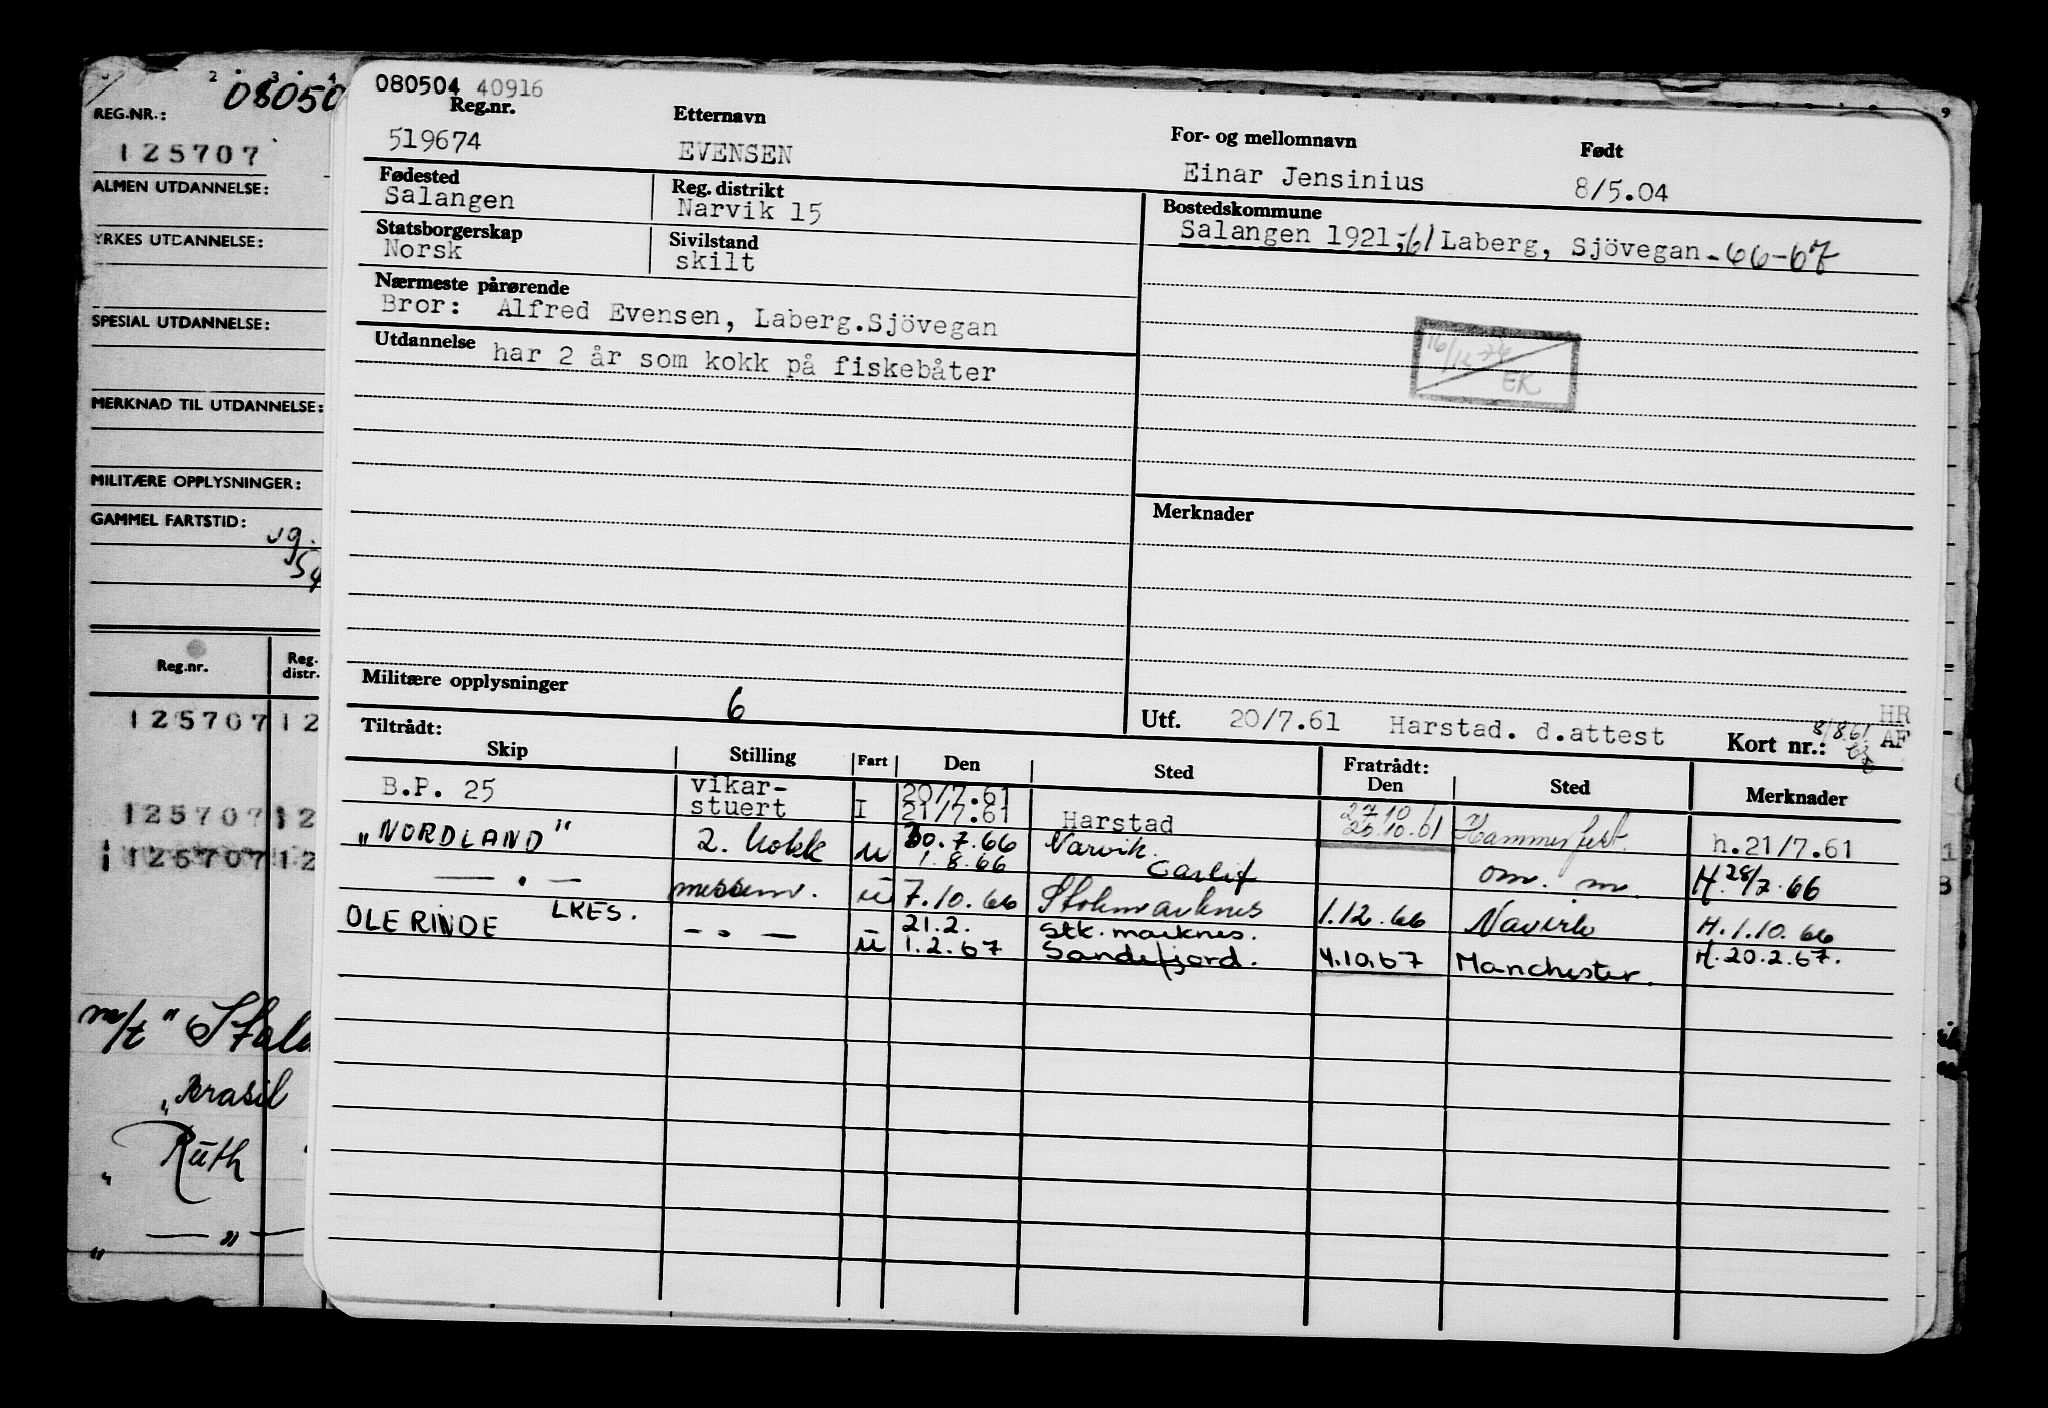 2 3 4
08050
REG.NR.:
125707
ALMEN UTDANNELSE:
YRKES UTDANNELSE:
SPESIAL UTDANNELSE:
MERKNAD TIL UTDANNELSE:
MILITÆRE OPPLYSNINGER:
GAMMEL FARTSTID:
54
Reg.nr. Reg. distr.
125707 12
125707 12
125707 12
m/t "
"Brasil
" Ruth
" — " —
9
080504 40916
Reg.nr. Etternavn For- og mellomnavn Født
519674 EVENSEN Einar Jensinius 8/5.04
Fødested Reg. distrikt Bostedskommune
Salangen Narvik 15 Salangen 1921,-61 Laberg, Sjövegan-66-67
Statsborgerskap Sivilstand
Norsk skilt
Nærmeste pårørende
Bror: Alfred Evensen, Laberg.Sjövegan
Utdannelse har 2 år som kokk på fiskebåter
16/12 74
EK
Merknader
Militære opplysninger 6
Utf. 20/7.61 Harstad. d.attest Kort nr.: 8/8.61 HR AF
Tiltrådt: Fratrådt:
Skip Stilling Fart Den Sted Den Sted Merknader
B.P. 25 vikar- 20/7.61 27.10
stuert I 21/7.61 Harstad 25.10.61 Hammerfest. h.21/7.61
"NORDLAND" 2. kokk u 30.7.66 Narvik.
1.8.66 om. m. H.28/7.66
— " — messem. u 7.10.66 Stokmarknes 1.12.66 Navirk H.1.10.66
OLE RINDE LKES. — " — u 21.2. Stk.marknes.
1.2.67 Sandefjord. 4.10.67 Manchester. H.20.2.67.